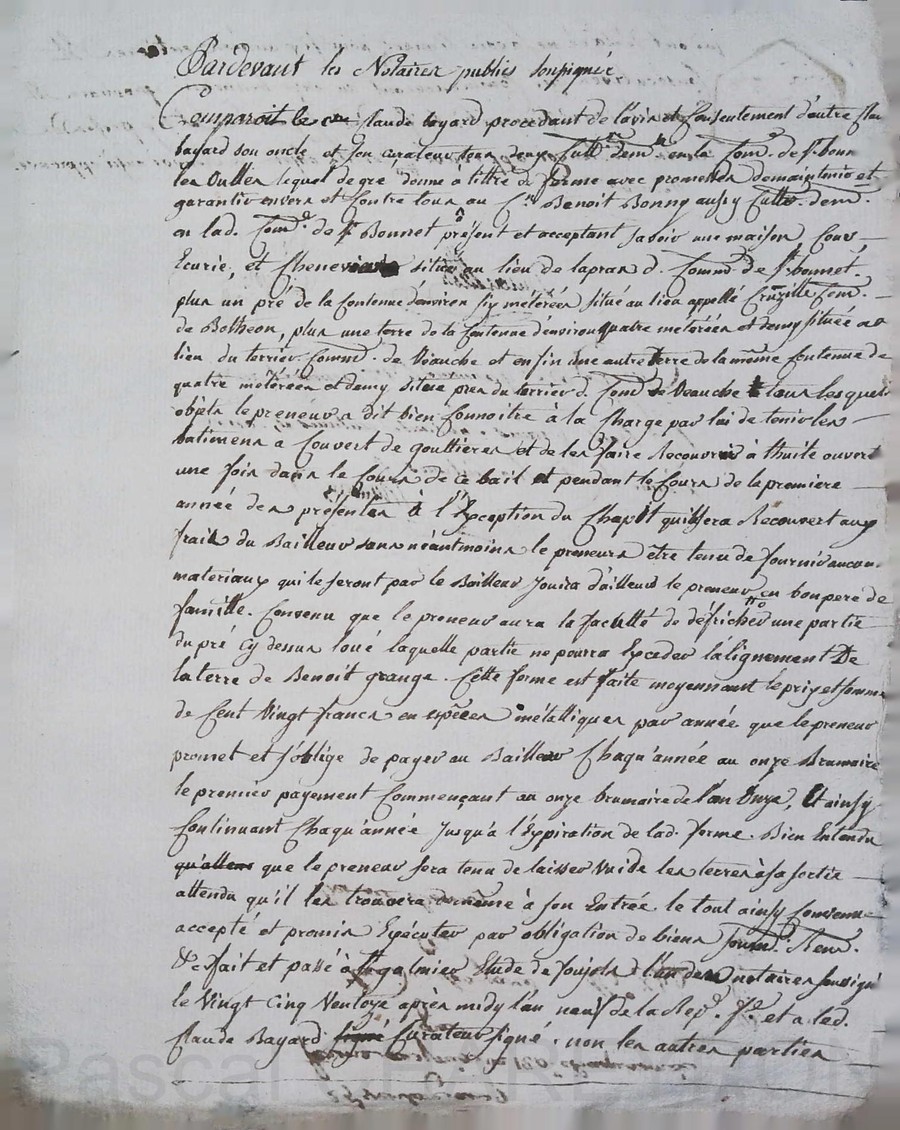 Pardevant les Notaires publics soussignés
Comparoit le cn Claude bayard procedant de l'avis et Consentement d'autre Clau
bayard son oncle et son curateur tous deux Cultrs demts en la Comne de st bonn
les Oulles lequel de gré donne à tittre de ferme avec promesses de maintenir et
garantir envers et Contre tous au Cn Benoit Bonny aussy Cultr demt
en lad. Comne de st Bonnet présent et acceptant savoir une maison, Cour
Ecurie, et Cheneviere située au lieu de lapra d. Comne de st bonnet.
plus un pré de la Contenue d'environ six métérées situé au lieu appellé Cruzille Comne
de Botheon, plus une terre de la Contenue d'environ quatre métérées et demy située au
lieu du terrier Comne de Veauche et enfin une autre terre de la même Contenue de
quatre métérées et demy située pres du terrier d. Comne de Veauche tous lesquels
objets le preneur a dit bien Connoitre à la Charge par lui de tenir les
batimens a Couvert de gouttieres et de les faire Recouvrir à thuile ouvert
une fois dans le Cours de ce bail et pendant le Cours de la premiere
année des présentes à l'Exception du Chapit qui sera Recouvert aux
frais du Bailleur sans néantmoins le preneur être tenu de fournir aucuns
materiaux qui le seront par le Bailleur Jouira d'ailleurs le preneur en bon pere de
famille. Convenu que le preneur aura la faculté de défricher une partie
du pré Cy dessus loué laquelle partie ne pourra Exceder l'alignement De
la terre de Benoit grange. Cette ferme est faite moyennant le prix et somme
de Cent Vingt francs en espèces métalliques par année que le preneur
promet et s'oblige de payer au Bailleur Chaqu'année au onze Brumaire
le premier payement Commençant au onze brumaire de l'an Onze, Et ainsy
Continuant Chaqu'année Jusqu'a l'Expiration de lad. ferme. Bien Entendu
que le preneur sera tenu de laisser Vuide les terres à sa sortie
attendu qu'il les trouvera de même à son Entrée le tout ainsy Convenu
accepté et promis Exécuter par obligation de biens soumn. Renn.
&c fait et passé à st galmier Etude de Joujols l'un des notaires soussigné
le Vingt Cinq Ventoze après midy l'an neuf de la Rep. fse et a led.
Claude Bayard Curateur signé, non les autres parties